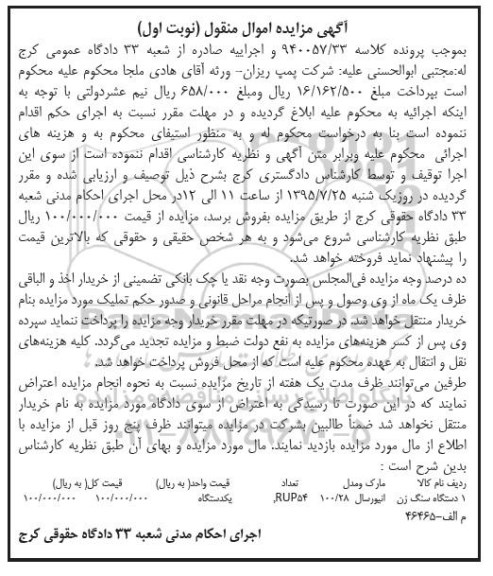 آگهی مزایده اموال منقول (نوبت اول)
بموجب پرونده کلاسه ۹۴۰۰۵۷/۳۳ و اجراییه صادره از شعبه ۳۳ دادگاه عمومی کرج
له:مجتبی ابوالحسنی علیه: شرکت پمپ ریزان– ورثه آقای هادی ملجا محکوم علیه محکوم
است بپرداخت مبلغ ۱۶/۱۶۲/۵۰۰ ریال ومبلغ ۶۵۸/۰۰۰ ریال نیم عشردولتی با توجه به
اینکه اجرائیه به محکوم علیه ابلاغ گردیده و در مهلت مقرر نسبت به اجرای حکم اقدام
ننموده است بنا به درخواست محکوم له و به منظور استیفای محکوم به و هزینه های
اجرائی محکوم علیه وبرابر متن آگهی و نظریه کارشناسی اقدام ننموده است از سوی این
اجرا توقیف و توسط کارشناس دادگستری کرج بشرح ذیل توصیف و ارزیابی شده و مقرر
گردیده در روزیک شنبه ۱۳۹۵/۷/۲۵ از ساعت ۱۱ الی ۱۲در محل اجرای احکام مدنی شعبه
۳۳ دادگاه حقوقی کرج از طریق مزایده بفروش برسد، مزایده از قیمت ۱۰۰/۰۰۰/۰۰۰ ریال
طبق نظریه کارشناسی شروع می‌شود و به هر شخص حقیقی و حقوقی که بالاترین قیمت
را پیشنهاد نماید فروخته خواهد شد.
ده درصد وجه مزایده فی‌المجلس بصورت وجه نقد یا چک بانکی تضمینی از خریدار اخذ و الباقی
ظرف یک ماه از وی وصول و پس از انجام مراحل قانونی و صدور حکم تملیک مورد مزایده بنام
خریدار منتقل خواهد شد. در صورتیکه در مهلت مقرر خریدار وجه مزایده را پرداخت ننماید سپرده
وی پس از کسر هزینه‌های مزایده به نفع دولت ضبط و مزایده تجدید می‌گردد. کلیه هزینه‌های
نقل و انتقال به عهده محکوم علیه است که از محل فروش پرداخت خواهد شد.
طرفین می‌توانند ظرف مدت یک هفته از تاریخ مزایده نسبت به نحوه انجام مزایده اعتراض
نمایند که در این صورت تا رسیدگی به اعتراض از سوی دادگاه مورد مزایده به نام خریدار
منتقل نخواهد شد ضمناً طالبین بشرکت در مزایده میتوانند ظرف پنج روز قبل از مزایده با
اطلاع از مال مورد مزایده بازدید نمایند. مال مورد مزایده و بهای آن طبق نظریه کارشناس
بدین شرح است :
ردیف نام کالا مارک ومدل تعداد قیمت واحد(به ریال) قیمت کل( به ریال)
۱ دستگاه سنگ زن انیورسال ۱۰۰/۲۸ RUP۵۴, یکدستگاه ۱۰۰/۰۰۰/۰۰۰ ۱۰۰/۰۰۰/۰۰۰
م الف–۴۶۴۶۵
اجرای احکام مدنی شعبه ۳۳ دادگاه حقوقی کرج